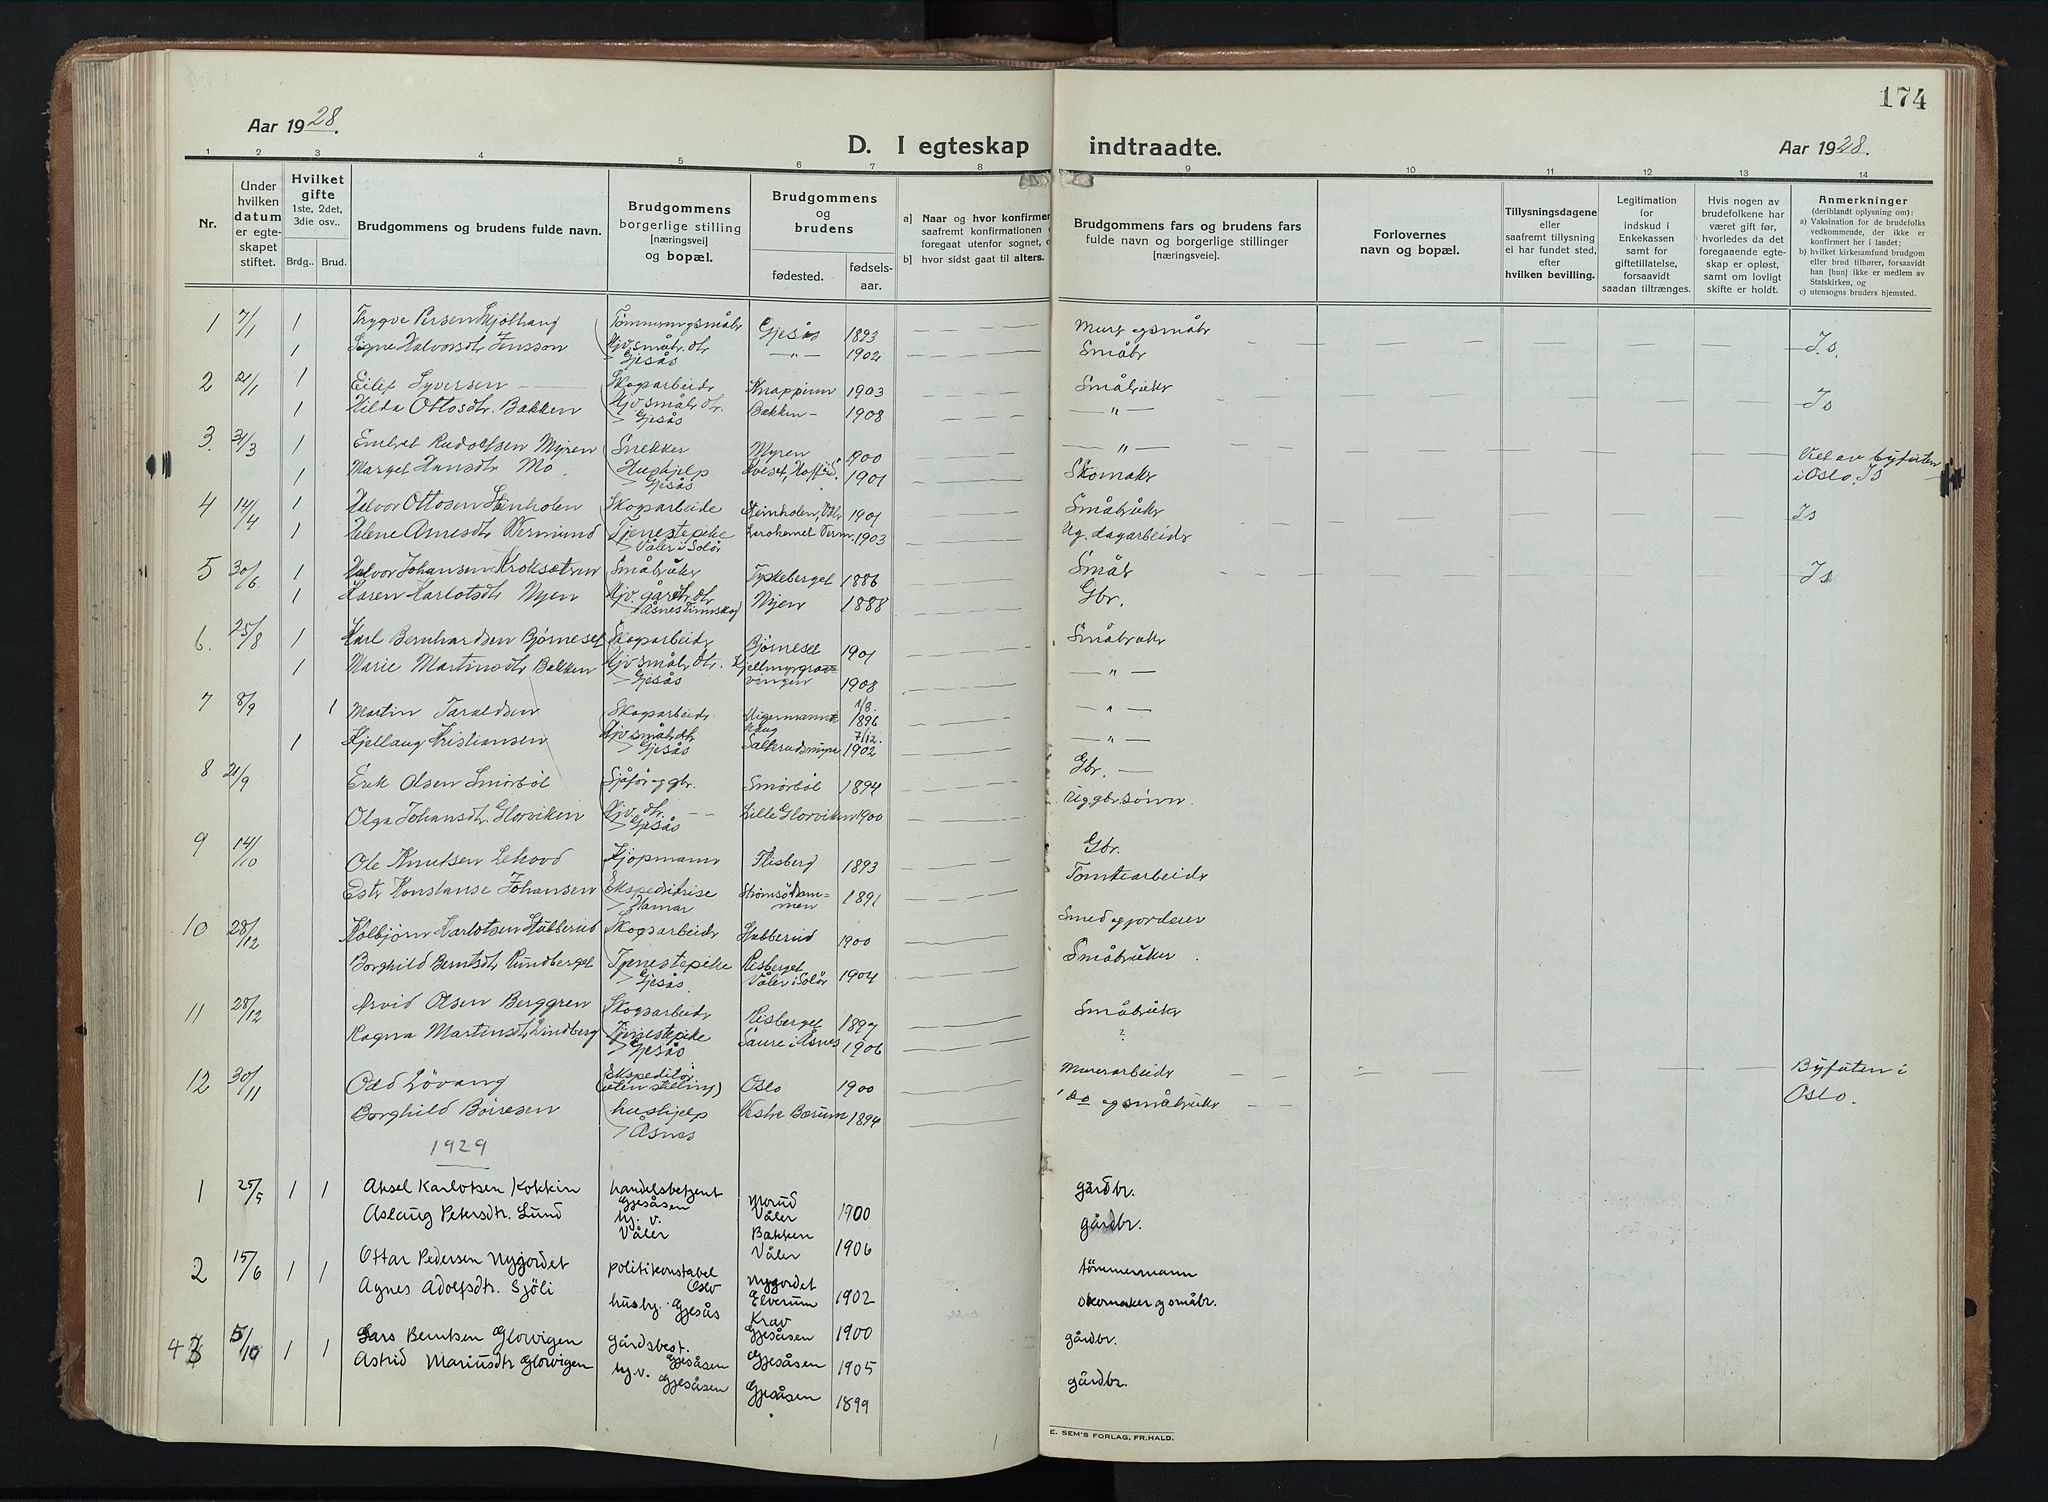 174
Aar 1928.
D. I egteskap indtraadte.
Aar 1928.
1 2 3 4 5 6 7 8 9 10 11 12 13 14
Nr.
Under hvilken datum er egteskapet stiftet.
Hvilket gifte
1ste, 2det, 3die osv..
Brdg.. Brud.
Brudgommens og brudens fulde navn.
Brudgommens borgerlige stilling [næringsvei] og bopæl.
Brudgommens og brudens
fødested. fødselsaar.
a] Naar og hvor konfirmer
saafremt konfirmationen
foregaat utenfor sognet,
b] hvor sidst gaat til alters.
Brudgommens fars og brudens fars
fulde navn og borgerlige stillinger
[næringsveie].
Forlovernes
navn og bopæl.
Tillysningsdagene
eller
saafremt tillysning
ei har fundet sted,
efter
hvilken bevilling.
Legitimation
for
indskud i
Enkekassen
samt for
giftetillatelse,
forsaavidt
saadan tiltrænges.
Hvis nogen av
brudefolkene har
været gift før,
hvorledes da det
foregaaende egteskap er opløst,
samt om lovligt
skifte er holdt.
Anmerkninger
(deriblandt oplysning om):
a) Vaksination for de brudefolks
vedkommende, der ikke er
konfirmert her i landet;
b) hvilket kirkesamfund brudgom
eller brud tilhører, forsaavidt
han [hun] ikke er medlem av
Statskirken, og
c) utensogns bruders hjemsted.
1 7/1 1 Trygve Persen Gjesås 1893 Murer og småbr
1 Signe Halvorsdtr Jensson Hjv. småbr. dtr Gjesås — " — 1902 Småbr Js.
2 21/1 1 Eilef Syversen Skogarbeidr 1903 Småbruker
1 Hilda Ottosdtr. Bakken Hjv. småbr dtr. Gjesås Bakken 1908 — " — Js
3. 31/3 1 Embret Rudolfsen Myren Snekker Myren 1900 — " —
1 Margit Hansdtr Mo. Hushjelp Gjesås 1901 Skomakr i Oslo. Js
4 14/4 1 Halvor Ottosen Steinholen Skogarbeide Steinholen, 1901 Småbrukr Js
1 Helene Arnesdtr Wermund Tjenestepike Våler i Solør 1903 Ug. dagarbeidr
5 30/6 1 Halvor Johansen Kroksætren Småbrukr Tyskeberget 1886 Småb Js
1 Karen Karlotsdtr Nyen Hjv. gårdbr. dtr Åsnes Finnskog Nyen 1888 Gbr.
6. 25/8 1 Karl Bernhardsen Bjørneset Skogarbeidr Bjørneset 1901 Småbrukr
1 Marie Martinsdtr Bakken Hjv småbr. dtr. Gjesås 1908 — " —
7 8/9 1 Martin Taraldsen Skogarbeidr 1/8. 1896 — " —
1 Kjellaug Kristiansen Hjv småbr. dtr Gjesås 7/12. 1902 — " —
8 21/9 Erik Olsen Smörböl Sjåfør og gbr. Smörböl 1894 Gbr. —
Olga Johansdtr. Glorviken Hjv. dtr. Gjesås Lille Glorviken 1900
9 14/10 Ole Knutsen Lekovd Kjøpmann Flisberg 1893 Gbr.
Estr Konstanse Johansen Ekspeditrise Hamar 1891 Tomtearbeidr
10 28/12 Kolbjørn Karlotsen Hubberud Skogsarbeidr Hubberud 1900
Borghild Berntsdtr Rundberget Tjenestepike Gjesås. Risberget Våler i Solör 1904 Småbruker.
11 28/12 Arvid Olsen Berggren Skogsarbeidr Risberget 1897 Småbrukr
Ragna Martinsdtr. Lindberg Tjenestepike Gjesås 1906 ?
12 30/11 Odd Lövang Ekspeditör (uten stilling) Oslo 1900 Murerarbeidr Byfuten i
Borghild Börresen hushjelp Åsnes Vestre Bærum 1894 do og småbrukr Oslo.
1929
1 25/5 1 1 Aksel Karlotsen Kokkin handelsbetjent Gjesåsen Morud Våler 1900 gårdbr.
Aslaug Petersdtr. Lund hj. v. Våler Bakken Våler 1906 gårdbr.
2 15/6 1 1 Ottar Pedersen Nygjordet politikonstabel Oslo Nygordet Elverum 1902 tömmermann
Agnes Adolfsdtr. Sjöli husby. Gjesås Krav Gjesåsen 1900 skomaker og småbr.
4 3 5/10 1 1 Lars Berntsen Glorvigen gårdsbest. Gjesåsen Gjesåsen 1905 gårdbr.
Astrid Mariusdtr Glorvigen hj.v. Gjesåsen Gjesåsen 1899 gårdbr.
E. SEM'S FORLAG, FR.HALD.